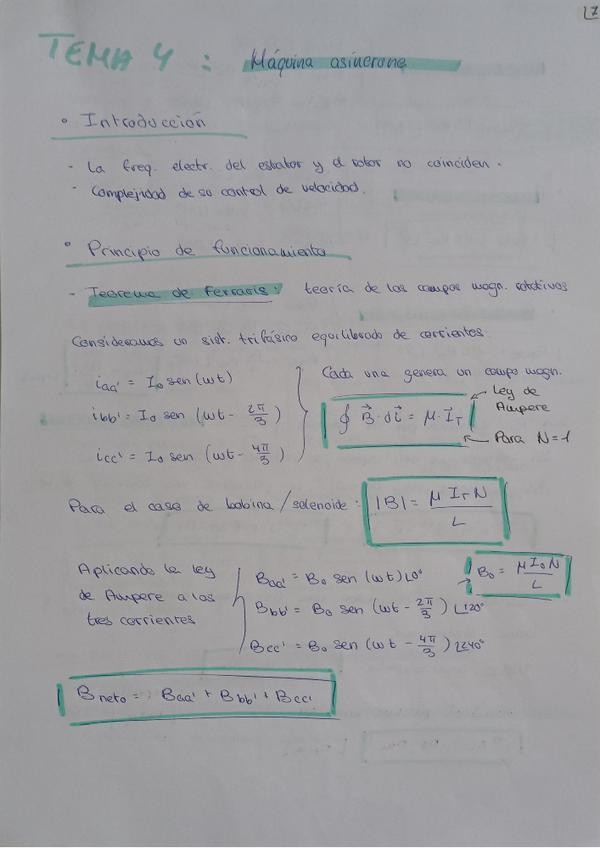 17
TEMA 4 : Máquina asíncrona
• Introducción
- La freq. electr. del estator y el rotor no coinciden.
- Complejidad de su control de velocidad.
• Principio de funcionamiento
- Teorema de Ferraris: teoría de los campos magn. rotativos
Consideramos un sist. trifásico equilibrado de corrientes.
iaa' = I₀ sen (ωt)
ibb' = I₀ sen (ωt - 2π/3)
icc' = I₀ sen (ωt - 4π/3)
Cada una genera un campo magn.
Ley de Ampere
∮ B⃗ · dl⃗ = μ · I⃗T
Para N=1
Para el caso de bobina/solenoide: |B| = μ IT N / L
Aplicando la ley
de Ampere a las
tres corrientes
Baa' = B₀ sen (ωt) ∟0°
Bbb' = B₀ sen (ωt - 2π/3) ∟120°
Bcc' = B₀ sen (ωt - 4π/3) ∟240°
→ B₀ = μ I₀ N / L
Bneto = Baa' + Bbb' + Bcc'